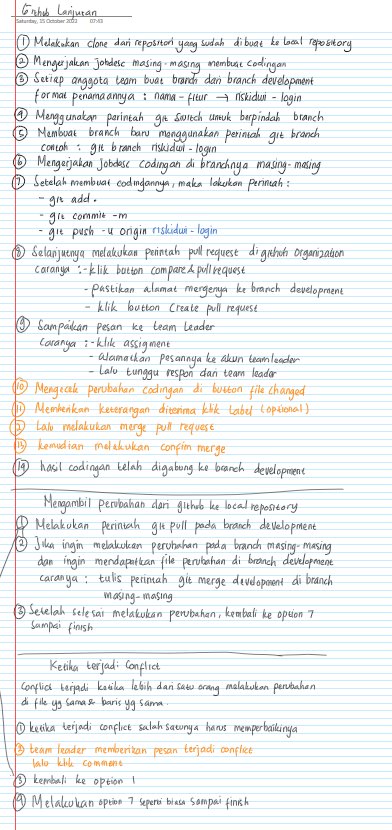 Github Lanjutan
Saturday, 15 October 2022 07:03
① Melakukan clone dari repositori yang sudah dibuat ke local repository
② Mengerjakan jobdesc masing-masing membuat codingan
③ Setiap anggota team buat branch dari branch development
format penamaannya : nama-fitur → riskidwi-login
④ Menggunakan perintah git switch untuk berpindah branch
⑤ Membuat branch baru menggunakan perintah git branch
contoh : git branch riskidwi-login
⑥ Mengerjakan jobdesc codingan di branchnya masing-masing
⑦ Setelah membuat codingannya, maka lakukan perintah :
- git add .
- git commit -m
- git push -u origin riskidwi-login
⑧ Selanjutnya melakukan perintah pull request di github organization
Caranya : - klik button compare & pull request
- pastikan alamat mergenya ke branch development
- klik button Create pull request
⑨ Sampaikan pesan ke team Leader
Caranya : - klik assigment
- Alamatkan pesannya ke akun team leader
- Lalu tunggu respon dari team leader
⑩ Mengecek perubahan codingan di button file changed
⑪ Memberikan keterangan diterima klik Label (optional)
⑫ Lalu melakukan merge pull request
⑬ kemudian melakukan confim merge
⑭ hasil codingan telah digabung ke branch development
Mengambil perubahan dari github ke local repository
① Melakukan perintah git pull pada branch development
② Jika ingin melakukan perubahan pada branch masing-masing
dan ingin mendapatkan file perubahan di branch development
caranya : tulis perintah git merge development di branch
masing-masing
③ Setelah selesai melakukan perubahan, kembali ke option 7
sampai finish
Ketika terjadi Conflict
Conflict terjadi ketika lebih dari satu orang melakukan perubahan
di file yg sama & baris yg sama.
① ketika terjadi conflict salah satunya harus memperbaikinya
② team leader memberikan pesan terjadi conflict
lalu klik comment
③ kembali ke option 1
④ Melakukan option 7 seperti biasa sampai finish